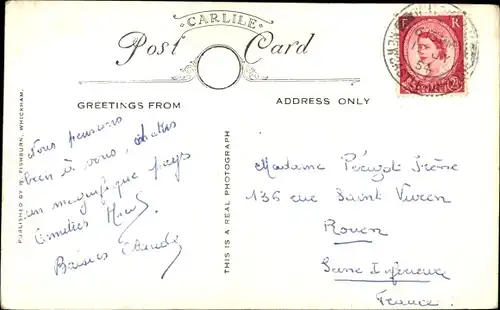 CARLILE
Post Card
GREETINGS FROM
ADDRESS ONLY
Nous pensons
bien à vous,
un magnifique pays
Amitiés
Baisers Claude
Madame Irène
136 rue Saint Vivien
Rouen
Seine Inférieure
France
PUBLISHED BY R. FISHBURN, WHICKHAM.
THIS IS A REAL PHOTOGRAPH